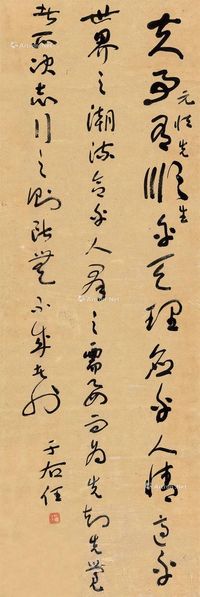 先生
夫事有順乎天理應乎人情適乎
世界之潮流合乎人群之需要而為先知先覺
者所決志行之則斷無不成者也
于右任